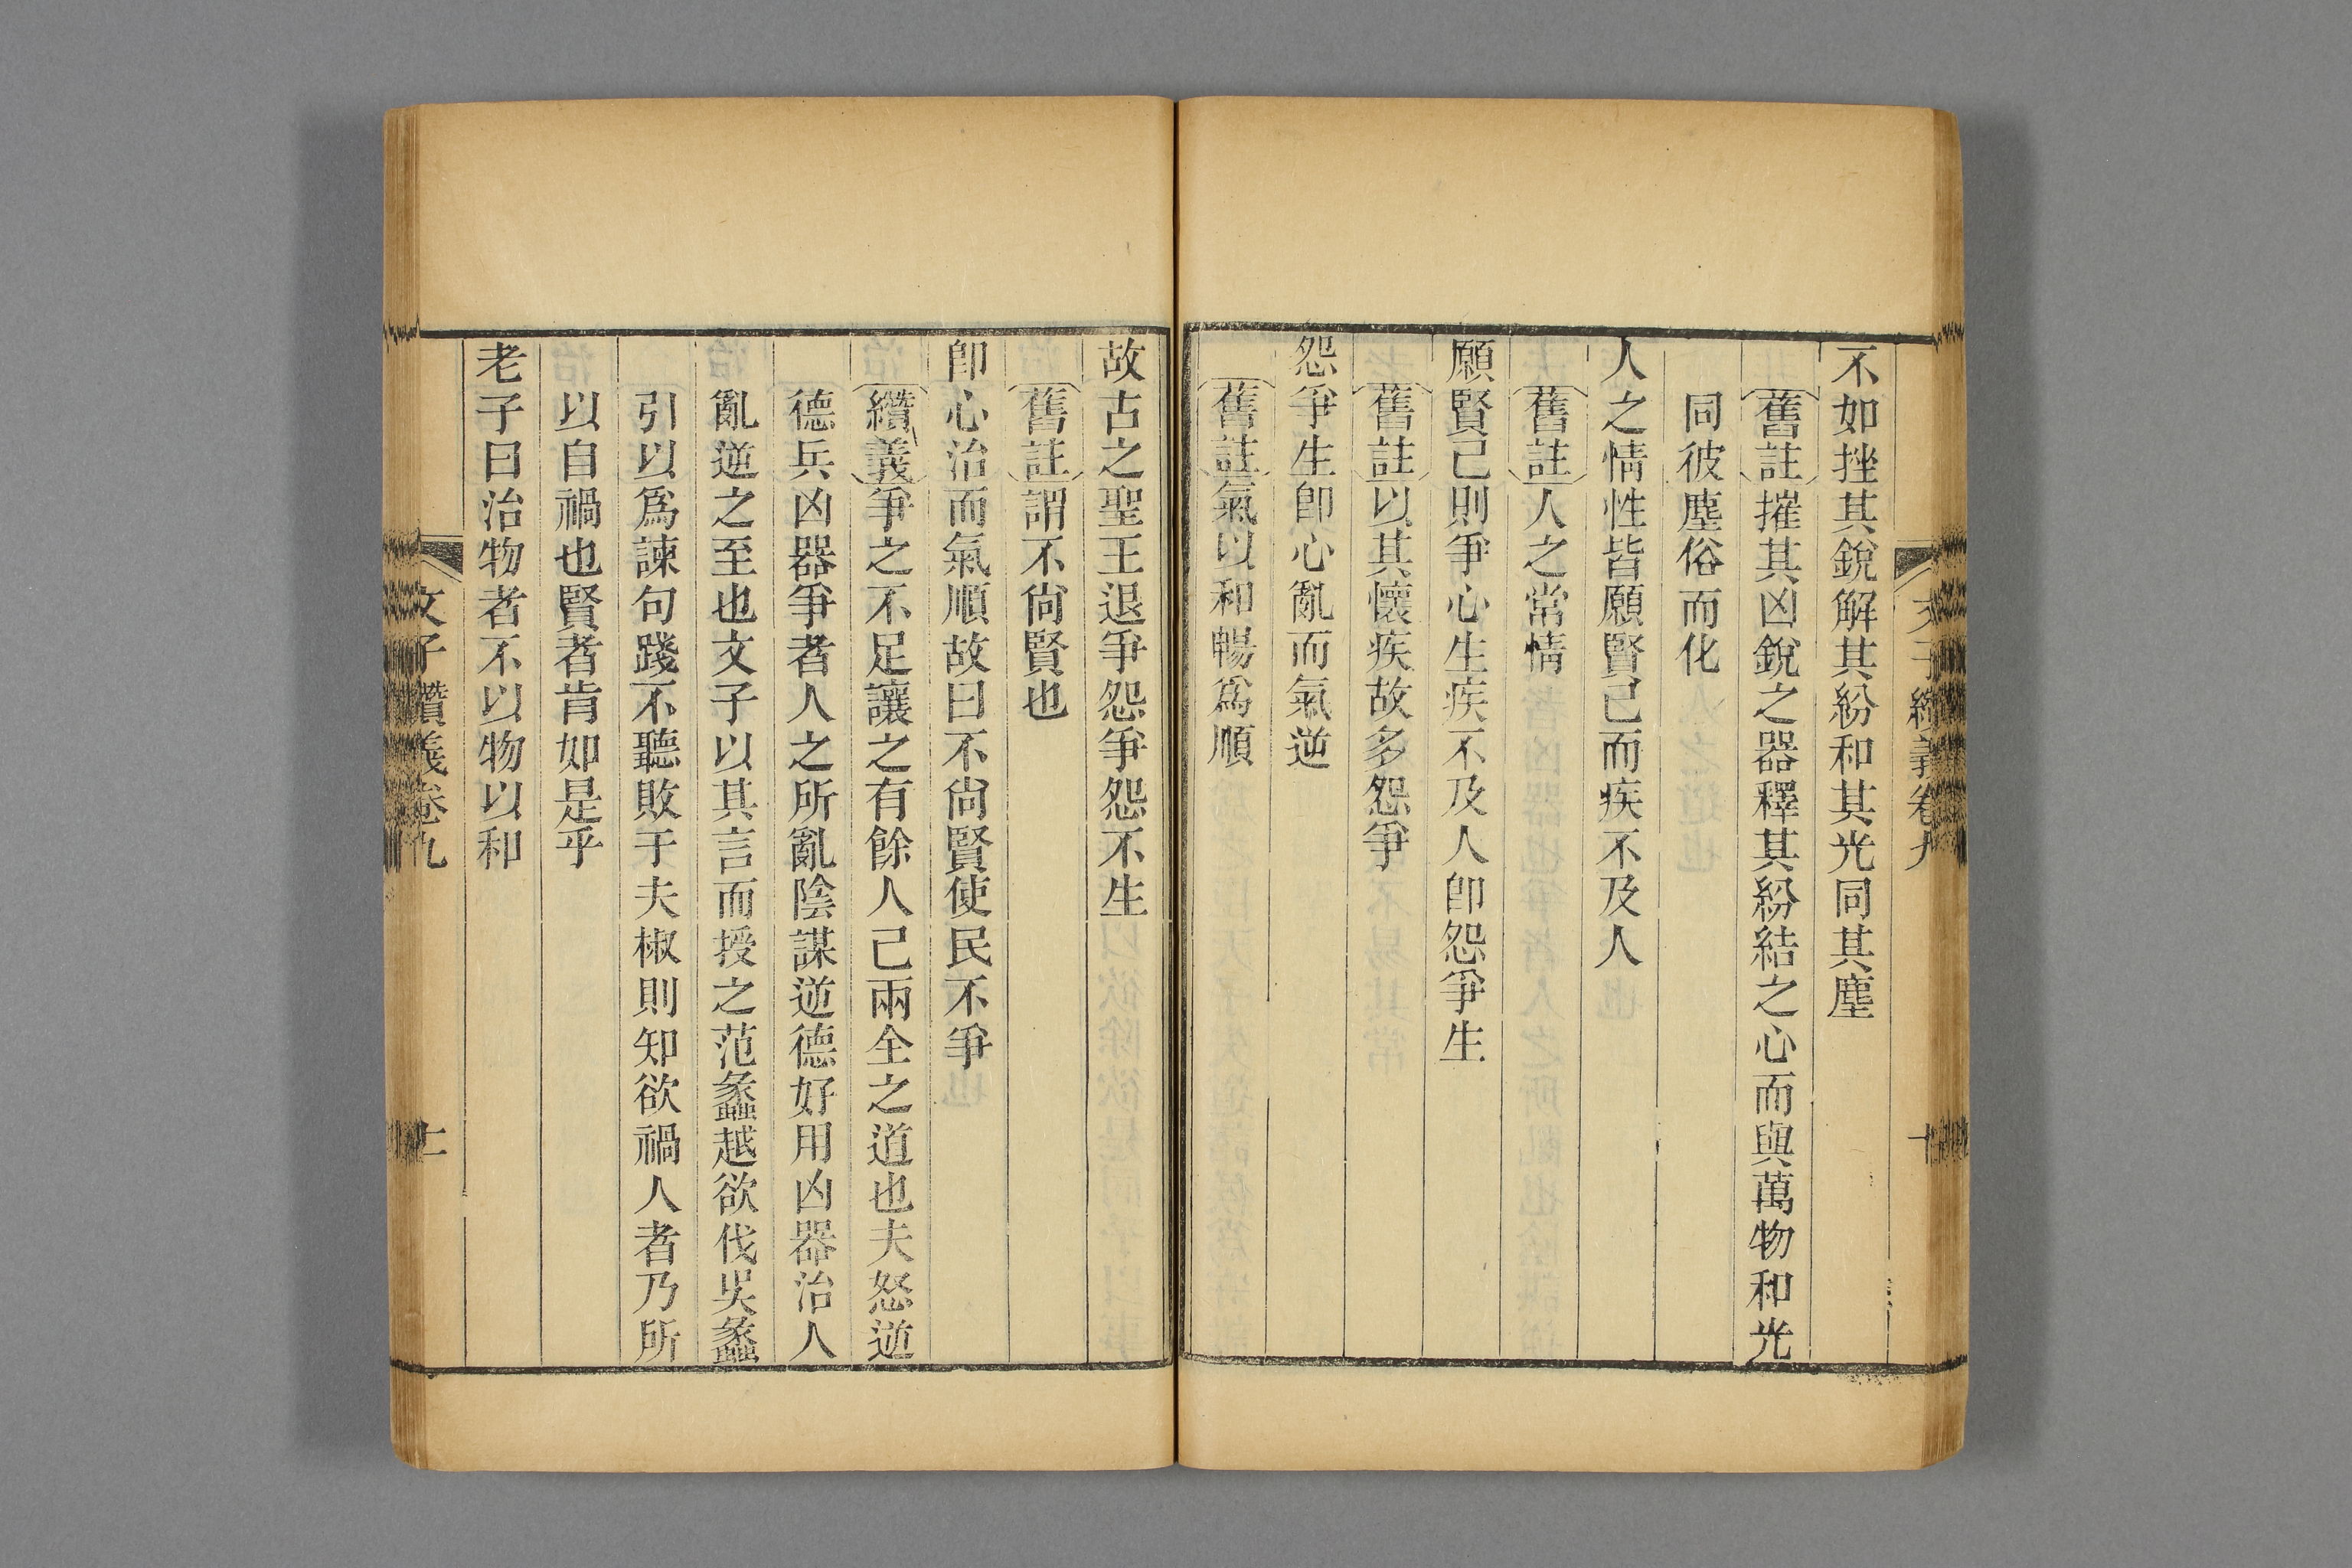 文子纘義卷九
十
不如挫其銳解其紛和其光同其塵
舊註摧其凶銳之器釋其紛結之心而與萬物和光
同彼塵俗而化
人之情性皆願賢己而疾不及人
舊註人之常情
願賢己則爭心生疾不及人卽怨爭生
舊註以其懷疾故多怨爭
怨爭生卽心亂而氣逆
舊註氣以和暢爲順
故古之聖王退爭怨爭怨不生
舊註謂不尙賢也
卽心治而氣順故曰不尙賢使民不爭
纘義爭之不足讓之有餘人己兩全之道也夫怒逆
德兵凶器爭者人之所亂陰謀逆德好用凶器治人
亂逆之至也文子以其言而授之范蠡越欲伐吳蠡
引以爲諫句踐不聽敗于夫椒則知欲禍人者乃所
以自禍也賢者肯如是乎
老子曰治物者不以物以和
文子纘義卷九